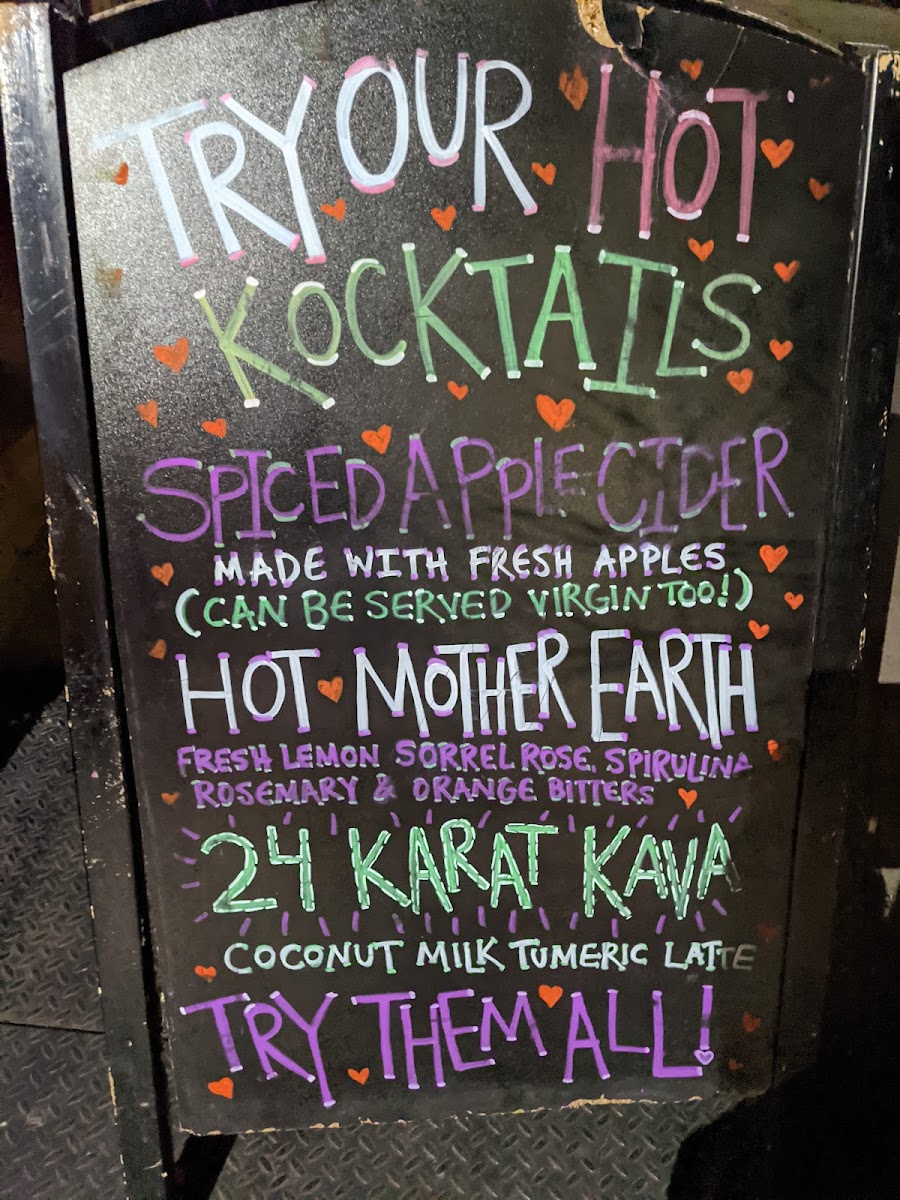 TRY OUR HOT
KOCKTAILS
SPICED APPLE CIDER
MADE WITH FRESH APPLES
(CAN BE SERVED VIRGIN TOO!)
HOT MOTHER EARTH
FRESH LEMON SORREL ROSE, SPIRULINA
ROSEMARY & ORANGE BITTERS
24 KARAT KAVA
COCONUT MILK TUMERIC LATTE
TRY THEM ALL!